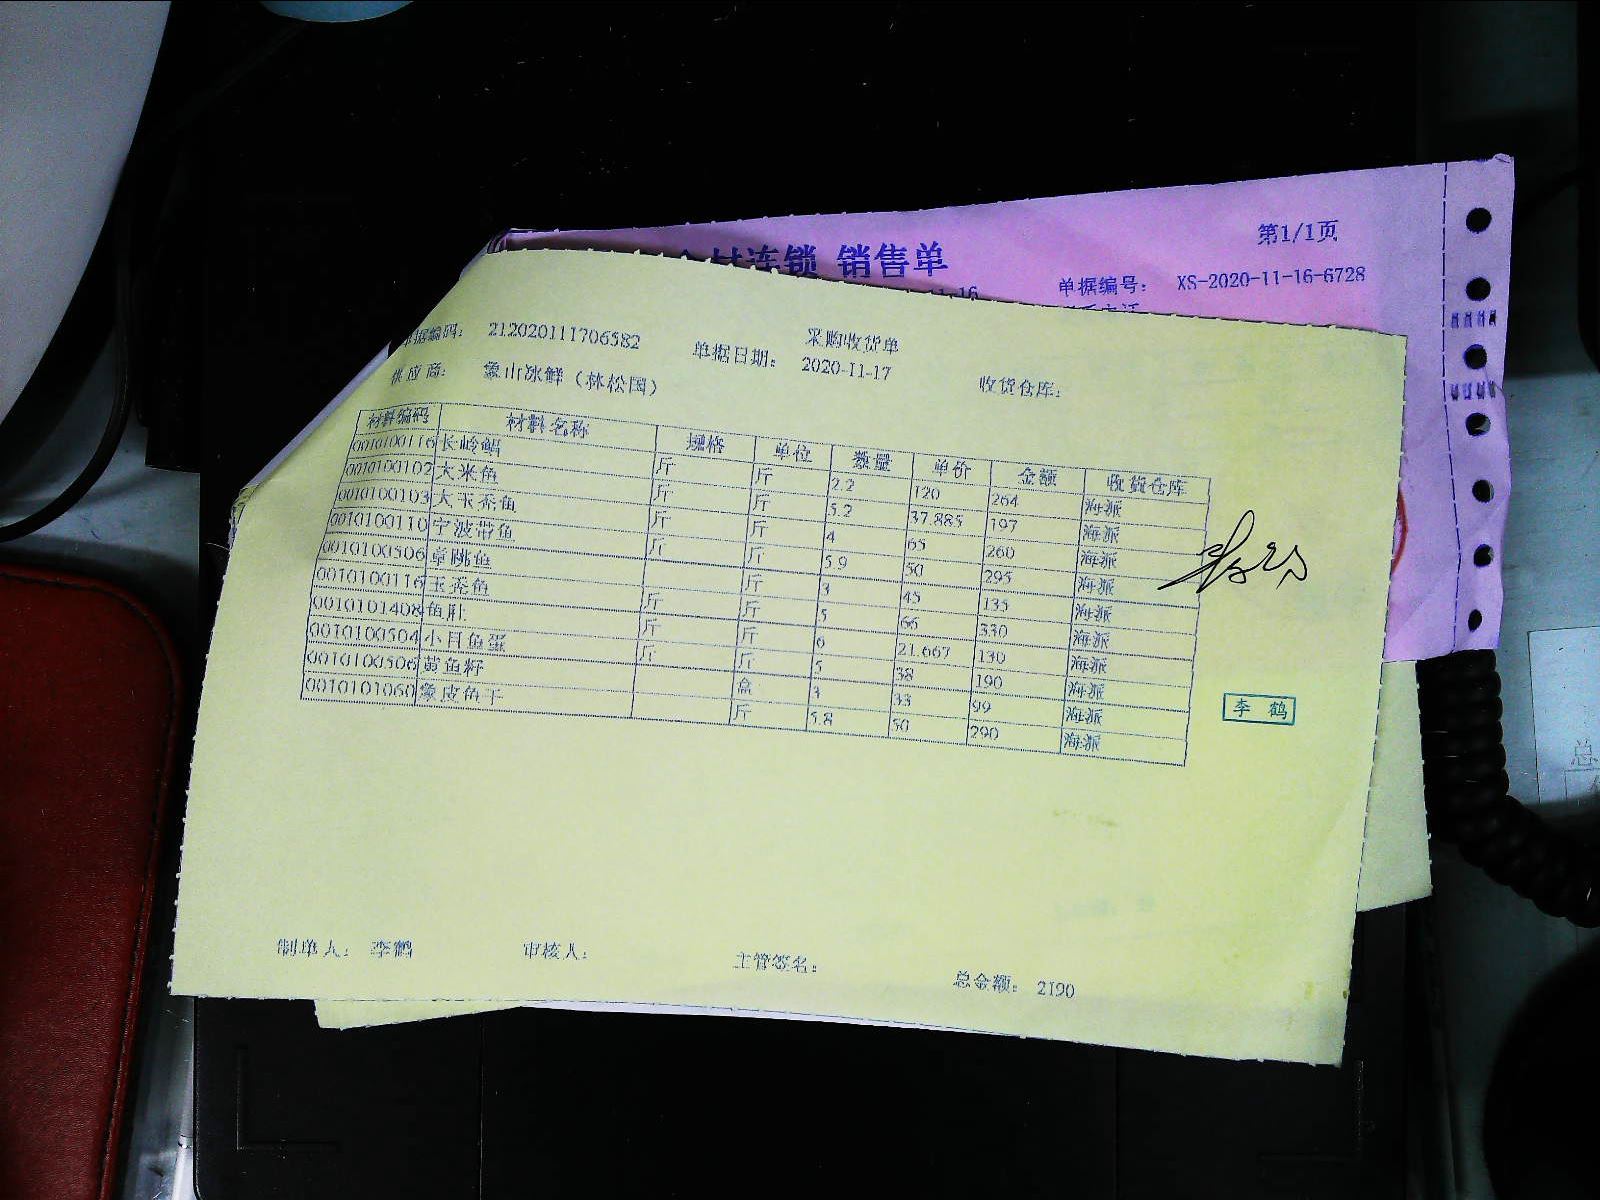 第1/1页
连锁 销售单
单据编号： XS-2020-11-16-6728
采购收货单
单据编码： 212020111706582 单据日期： 2020-11-17 收货仓库：
供应商： 象山冰鲜（林松国）
材料编码 材料名称 规格 单位 数量 单价 金额 收货仓库
0010100116 长岭鲳 斤 斤 2.2 120 264 海派
0010100102 大米鱼 斤 斤 5.2 37.885 197 海派
0010100103 大玉秃鱼 斤 斤 4 65 260 海派
0010100110 宁波带鱼 斤 斤 5.9 50 295 海派
0010100506 章跳鱼 斤 3 45 135 海派
0010100116 玉秃鱼 斤 斤 5 66 330 海派
0010101408 鱼肚 斤 斤 6 21.667 130 海派
0010100504 小目鱼蛋 斤 斤 5 38 190 海派
0010100506 黄鱼籽 盒 3 33 99 海派
0010101060 象皮鱼干 斤 5.8 50 290 海派
李 鹤
制单人： 李鹤 审核人： 主管签名： 总金额： 2190
总